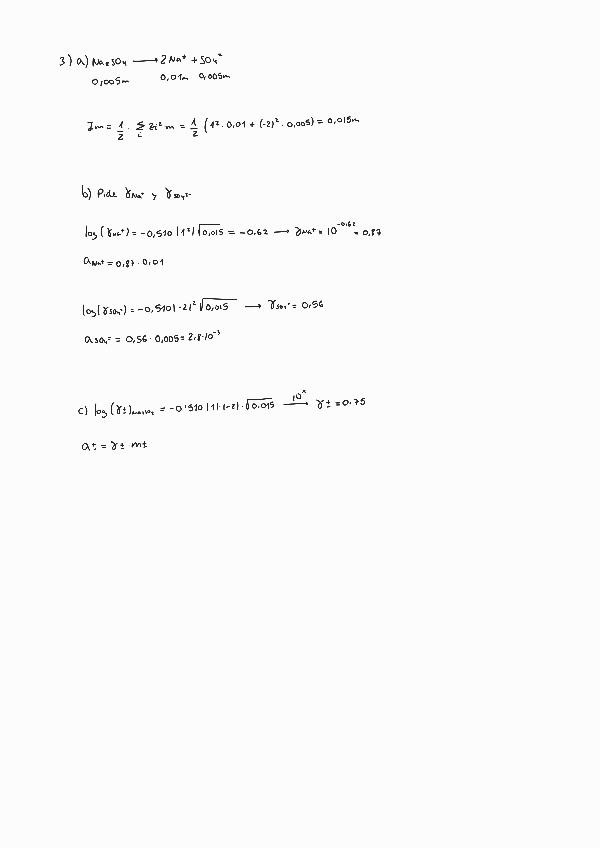 3) a) Na₂SO₄ ⟶ 2 Na⁺ + SO₄⁼
0,005m 0,01m 0,005m
Im = 1/2 · Σᵢ Zi² m = 1/2 (1² · 0,01 + (-2)² · 0,005) = 0,015m
b) Pide γNa⁺ y γSO₄²⁻
log (γNa⁺) = -0,510 |1²| √0,015 = -0.62 ⟶ γNa⁺ = 10^-0,62 = 0,87
aNa⁺ = 0,87 · 0,01
log (γSO₄⁼) = -0,510 |-2|² √0,015 ⟶ γSO₄⁼ = 0,56
aSO₄⁼ = 0,56 · 0,005 = 2,8·10⁻³
c) log (γ±)Na₂SO₄ = -0'510 |1|·|-2| · √0.015 ⟶ 10ˣ γ± = 0.75
a± = γ± m±